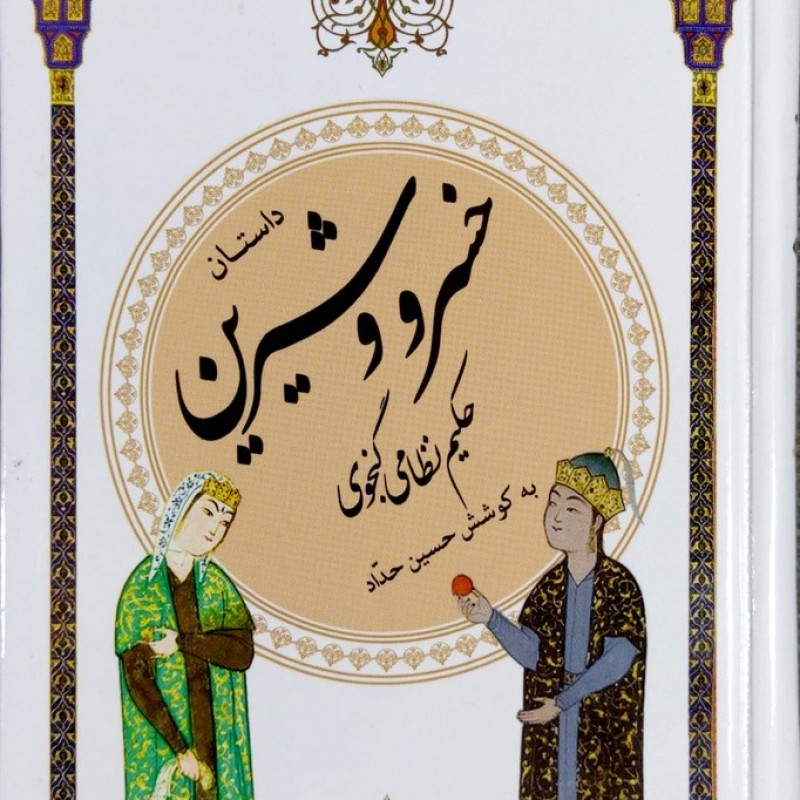 داستان
خسرو و شیرین
حکیم نظامی گنجوی
به کوشش حسین حدّاد